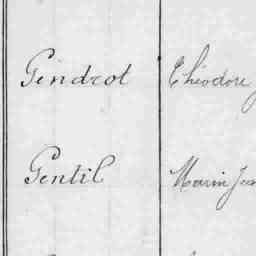 Gendrot Théodore
Gentil Marin Jean